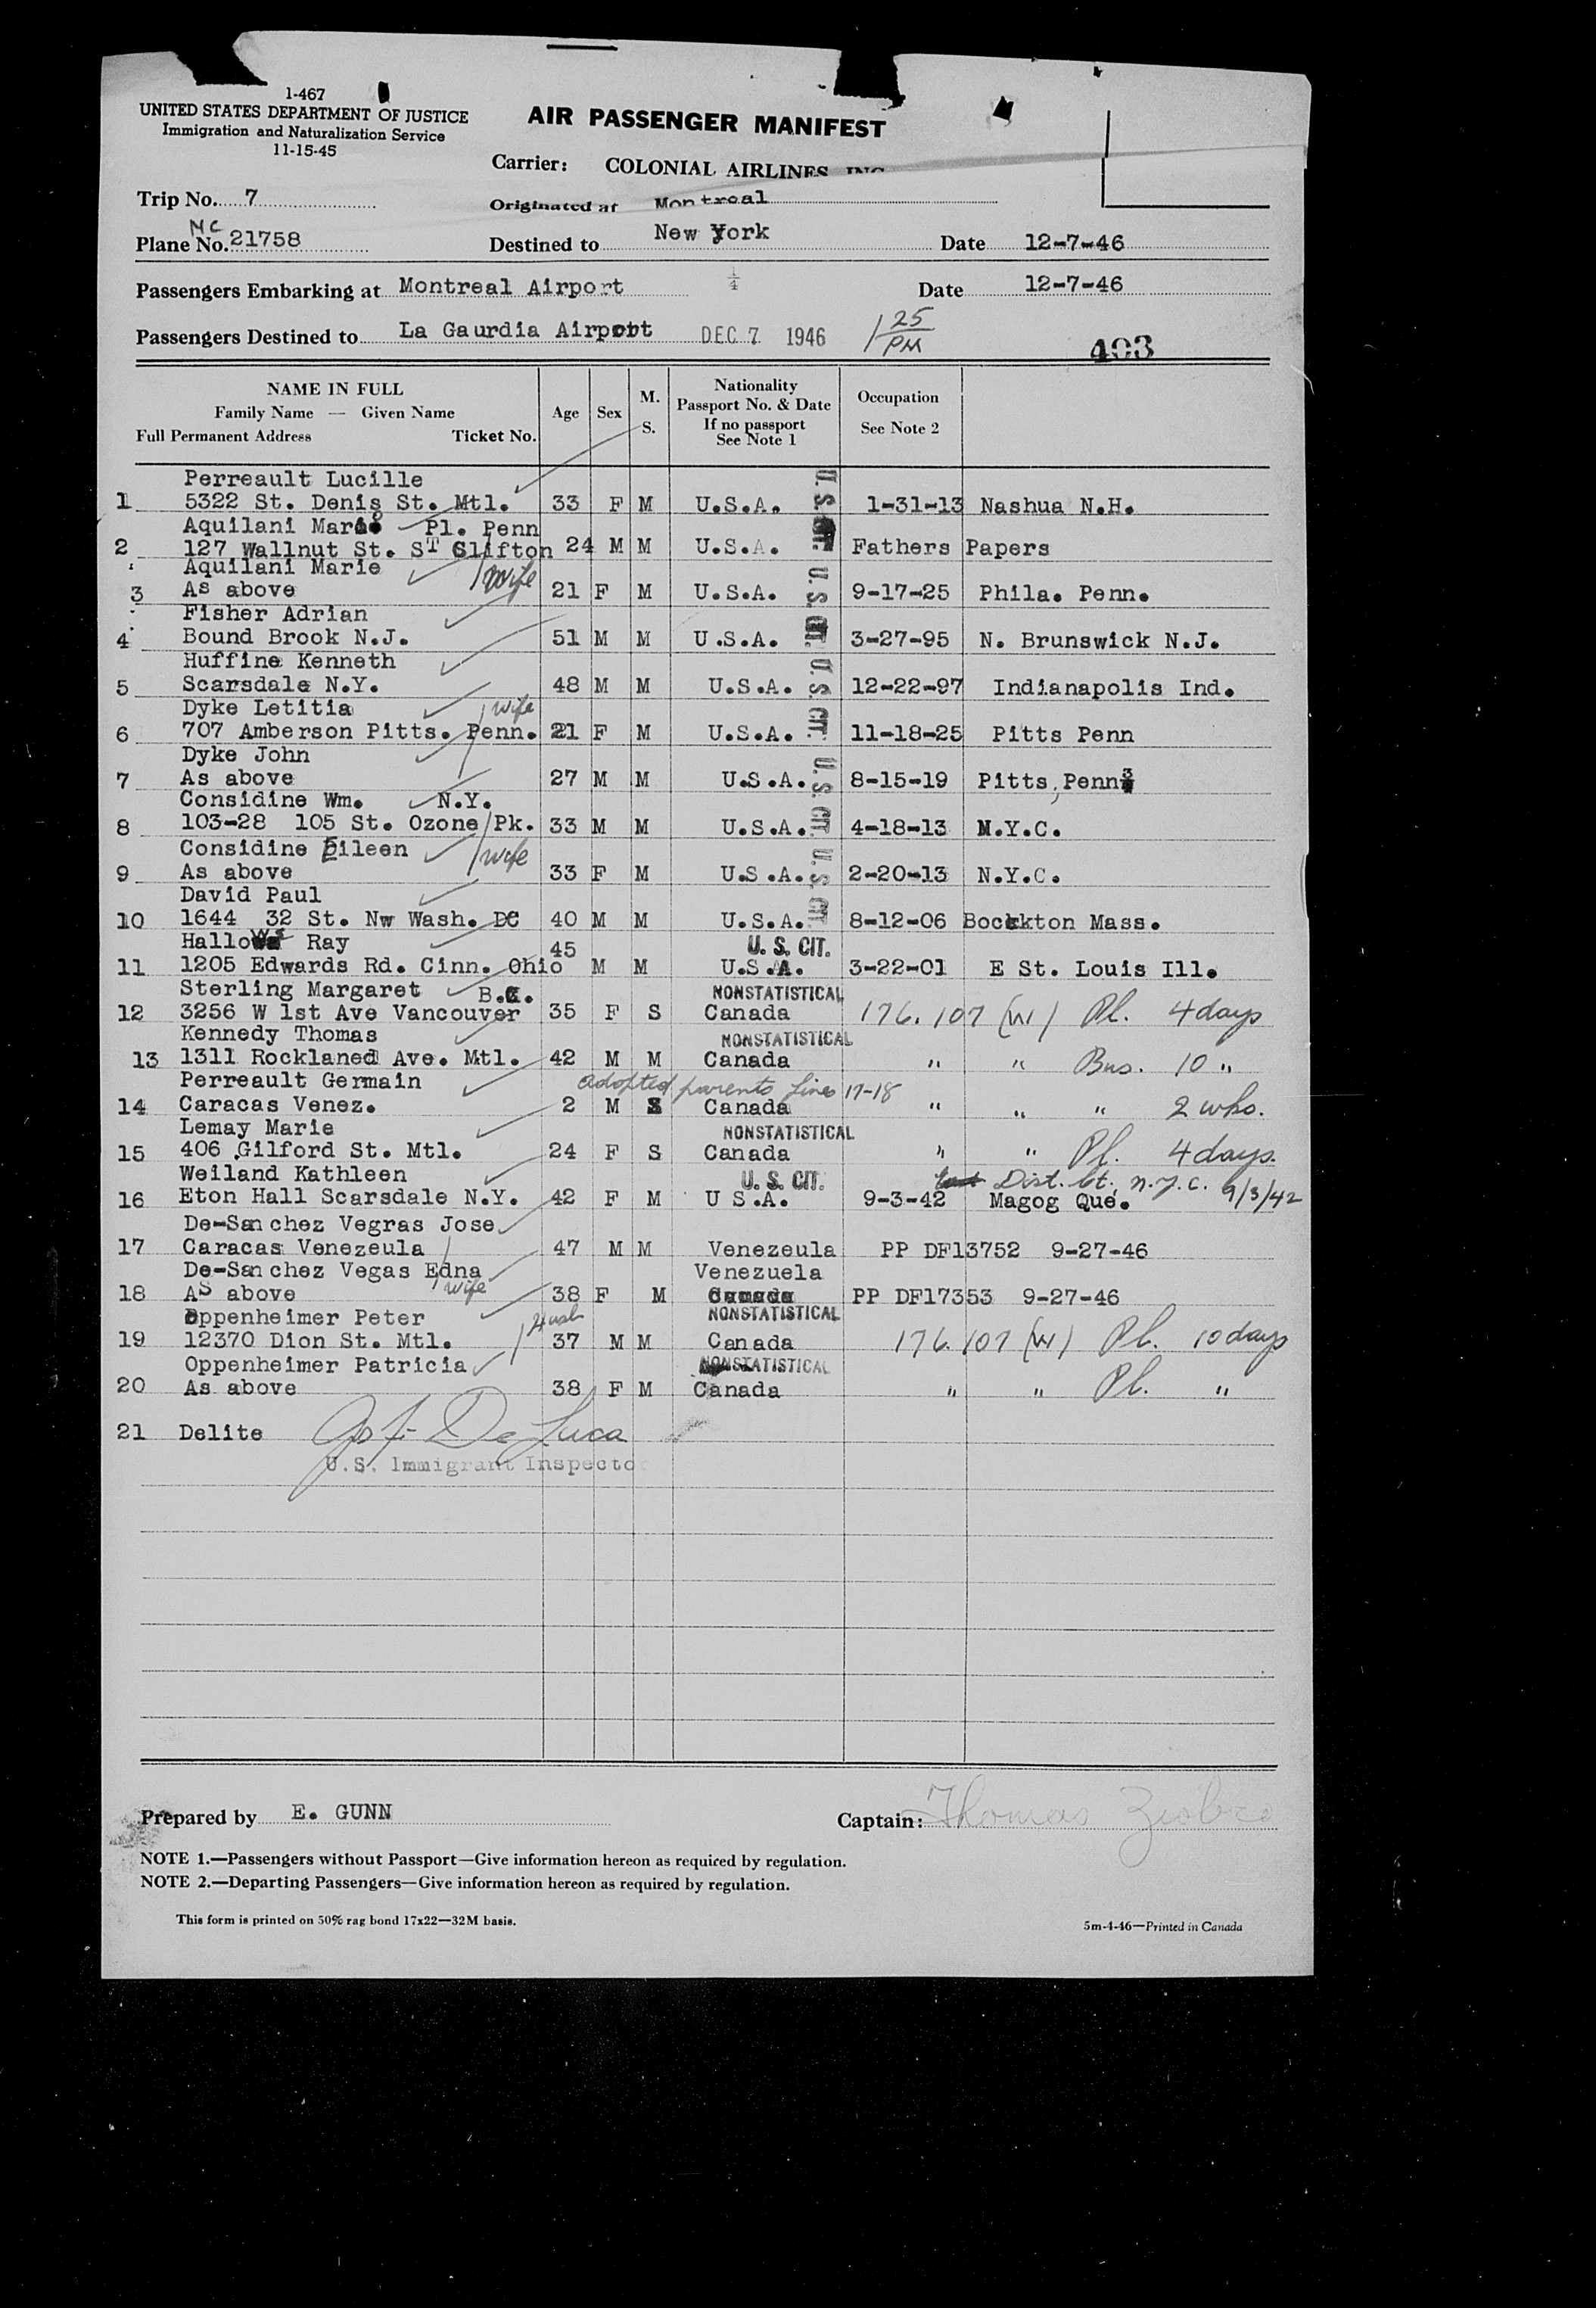 1-467
UNITED STATES DEPARTMENT OF JUSTICE
Immigration and Naturalization Service
11-15-45
AIR PASSENGER MANIFEST
Carrier: COLONIAL AIRLINES INC
Trip No. 7
Originated at Montreal
NC
Plane No. 21758 Destined to New York Date 12-7-46
Passengers Embarking at Montreal Airport 1/4 Date 12-7-46
Passengers Destined to La Gaurdia Airport DEC 7 1946 1 25 PM
403
NAME IN FULL
Family Name — Given Name
Full Permanent Address Ticket No.
Age Sex M. S.
Nationality
Passport No. & Date
If no passport
See Note 1
Occupation
See Note 2
Perreault Lucille
1 5322 St. Denis St. Mtl. 33 F M U.S.A. U.S. 1-31-13 Nashua N.H.
Aquilani Pl. Penn
2 127 Wallnut St. ST Clifton 24 M M U.S.A. Fathers Papers
Aquilani Marie wife
3 As above 21 F M U.S.A. U.S. 9-17-25 Phila. Penn.
Fisher Adrian
4 Bound Brook N.J. 51 M M U.S.A. CIT. 3-27-95 N. Brunswick N.J.
Huffine Kenneth
5 Scarsdale N.Y. 48 M M U.S.A. U.S. 12-22-97 Indianapolis Ind.
Dyke Letitia wife
6 707 Amberson Pitts. Penn. 21 F M U.S.A. CIT. 11-18-25 Pitts Penn
Dyke John
7 As above 27 M M U.S.A. U.S. 8-15-19 Pitts, Penn
Considine Wm. N.Y.
8 103-28 105 St. Ozone Pk. 33 M M U.S.A. CIT. 4-18-13 N.Y.C.
Considine Eileen wife
9 As above 33 F M U.S.A. U.S. 2-20-13 N.Y.C.
David Paul
10 1644 32 St. Nw Wash. DC 40 M M U.S.A. CIT 8-12-06 Bockton Mass.
Hallows Ray 45 U. S. CIT.
11 1205 Edwards Rd. Cinn. Ohio M M U.S.A. 3-22-01 E St. Louis Ill.
Sterling Margaret B.C. NONSTATISTICAL
12 3256 W 1st Ave Vancouver 35 F S Canada 176.107 (W) Pl. 4 days
Kennedy Thomas NONSTATISTICAL
13 1311 Rocklaned Ave. Mtl. 42 M M Canada " " Bus. 10 "
Perreault Germain adopted parents lines 17-18
14 Caracas Venez. 2 M S Canada " " " 2 wks.
Lemay Marie NONSTATISTICAL
15 406 Gilford St. Mtl. 24 F S Canada " " Pl. 4 days.
Weiland Kathleen U. S. CIT. Dist. Ct., N.Y.C. 9/3/42
16 Eton Hall Scarsdale N.Y. 42 F M U S.A. 9-3-42 Magog Que.
De-Sanchez Vegras Jose
17 Caracas Venezeula 47 M M Venezeula PP DF13752 9-27-46
De-Sanchez Vegas Edna wife Venezuela
18 As above 38 F M Canada PP DF17353 9-27-46
Oppenheimer Peter Husb NONSTATISTICAL
19 12370 Dion St. Mtl. 37 M M Canada 176.107 (W) Pl. 10 days
Oppenheimer Patricia NONSTATISTICAL
20 As above 38 F M Canada " " Pl. "
21 Delite De Luca
U.S. Immigrant Inspector
Prepared by E. GUNN Captain: Thomas
NOTE 1.—Passengers without Passport—Give information hereon as required by regulation.
NOTE 2.—Departing Passengers—Give information hereon as required by regulation.
This form is printed on 50% rag bond 17x22—32M basis.
5m-4-46—Printed in Canada